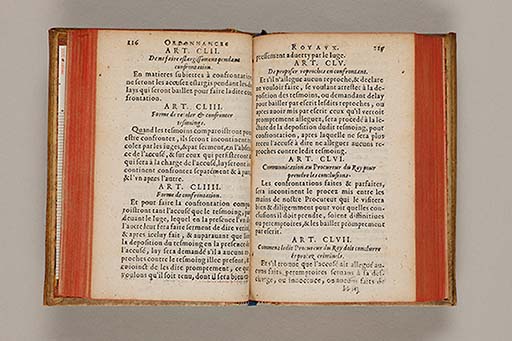 216 ORDONNANCES
ART. CLII.
De ne faire eslargissement pendant
confrontation.
En matieres subiettes à confrontation
ne seront les accusez eslargis pendant les de
lays qui seront baillez pour faire ladite con
frontation.
ART. CLIII.
Forme de recoler & confronter
tesmoings.
Quand les tesmoins comparoistront pour
estre confrontez, ils seront incontinent re
colez par les iuges, & par serment, en l'absen
ce de l'accusé, & sur ceux qui persisteront &
qui sera à la charge de l'accusé, luy seront in
continent confrontez separément & à part
& l'vn apres l'autre.
ART. CLIIII.
Forme de confrontation.
Et pour faire la confrontation comp
roistront tant l'accusé que le tesmoing, par
deuant le Iuge, lequel en la presence l'vn de
l'autre leur fera faire serment de dire verité
& apres iceluy fait, & auparauant que lire
la deposition du tesmoing en la presence de
l'accusé, luy sera demandé s'il a aucuns re
proches contre le tesmoing illec present, &
enioinct de les dire promptement, ce que
voulons qu'il soit tenu, dont il sera bien
ROYAVX.
pressement aduerty par le Iuge.
ART. CLV.
De proposer reproches en confrontant.
Et s'il n'allegue aucun reproche, & declare
ne vouloir faire, se voulant arrester à la de-
position des tesmoins, ou demandant delay
pour bailler par escrit lesdits reproches, ou
apres auoir mis par escrit ceux qu'il verroit
promptement alleguer, sera procedé à la le-
cture de la deposition dudit tesmoing, pour
confrontation, apres laquelle ne sera plus
receu l'accusé à dire ne alleguer aucuns re-
proches contre ledit tesmoing.
ART. CLVI.
Communication au Procureur du Roy pour
prendre les conclusions.
Les confrontations faites & parfaites,
sera incontinent le proces mis entre les
mains de nostre Procureur qui le visitera
bien & diligemment pour voir quelles con-
clusions il doit prendre, soient diffinitiues
ou peremptoires, & les bailler promptement
par escrit.
ART. CLVII.
Comment ledit Procureur du Roy doit conclurre
le procez criminels.
Et s'il trouue que l'accusé ait allegué au-
cuns faits, peremptoires seruans à la des-
charge, ou innocence, ou aucuns faits de